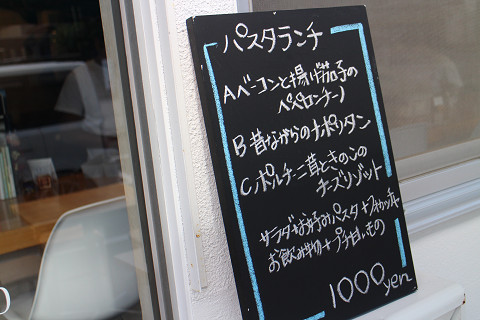 パスタランチ
Aベーコンと揚げ茄子の
ペペロンチーノ
B昔ながらのナポリタン
Cポルチーニ茸ときのこの
チーズリゾット
サラダ+お好みパスタ+フォカッチャ
お飲み物+プチ甘いもの
1000yen